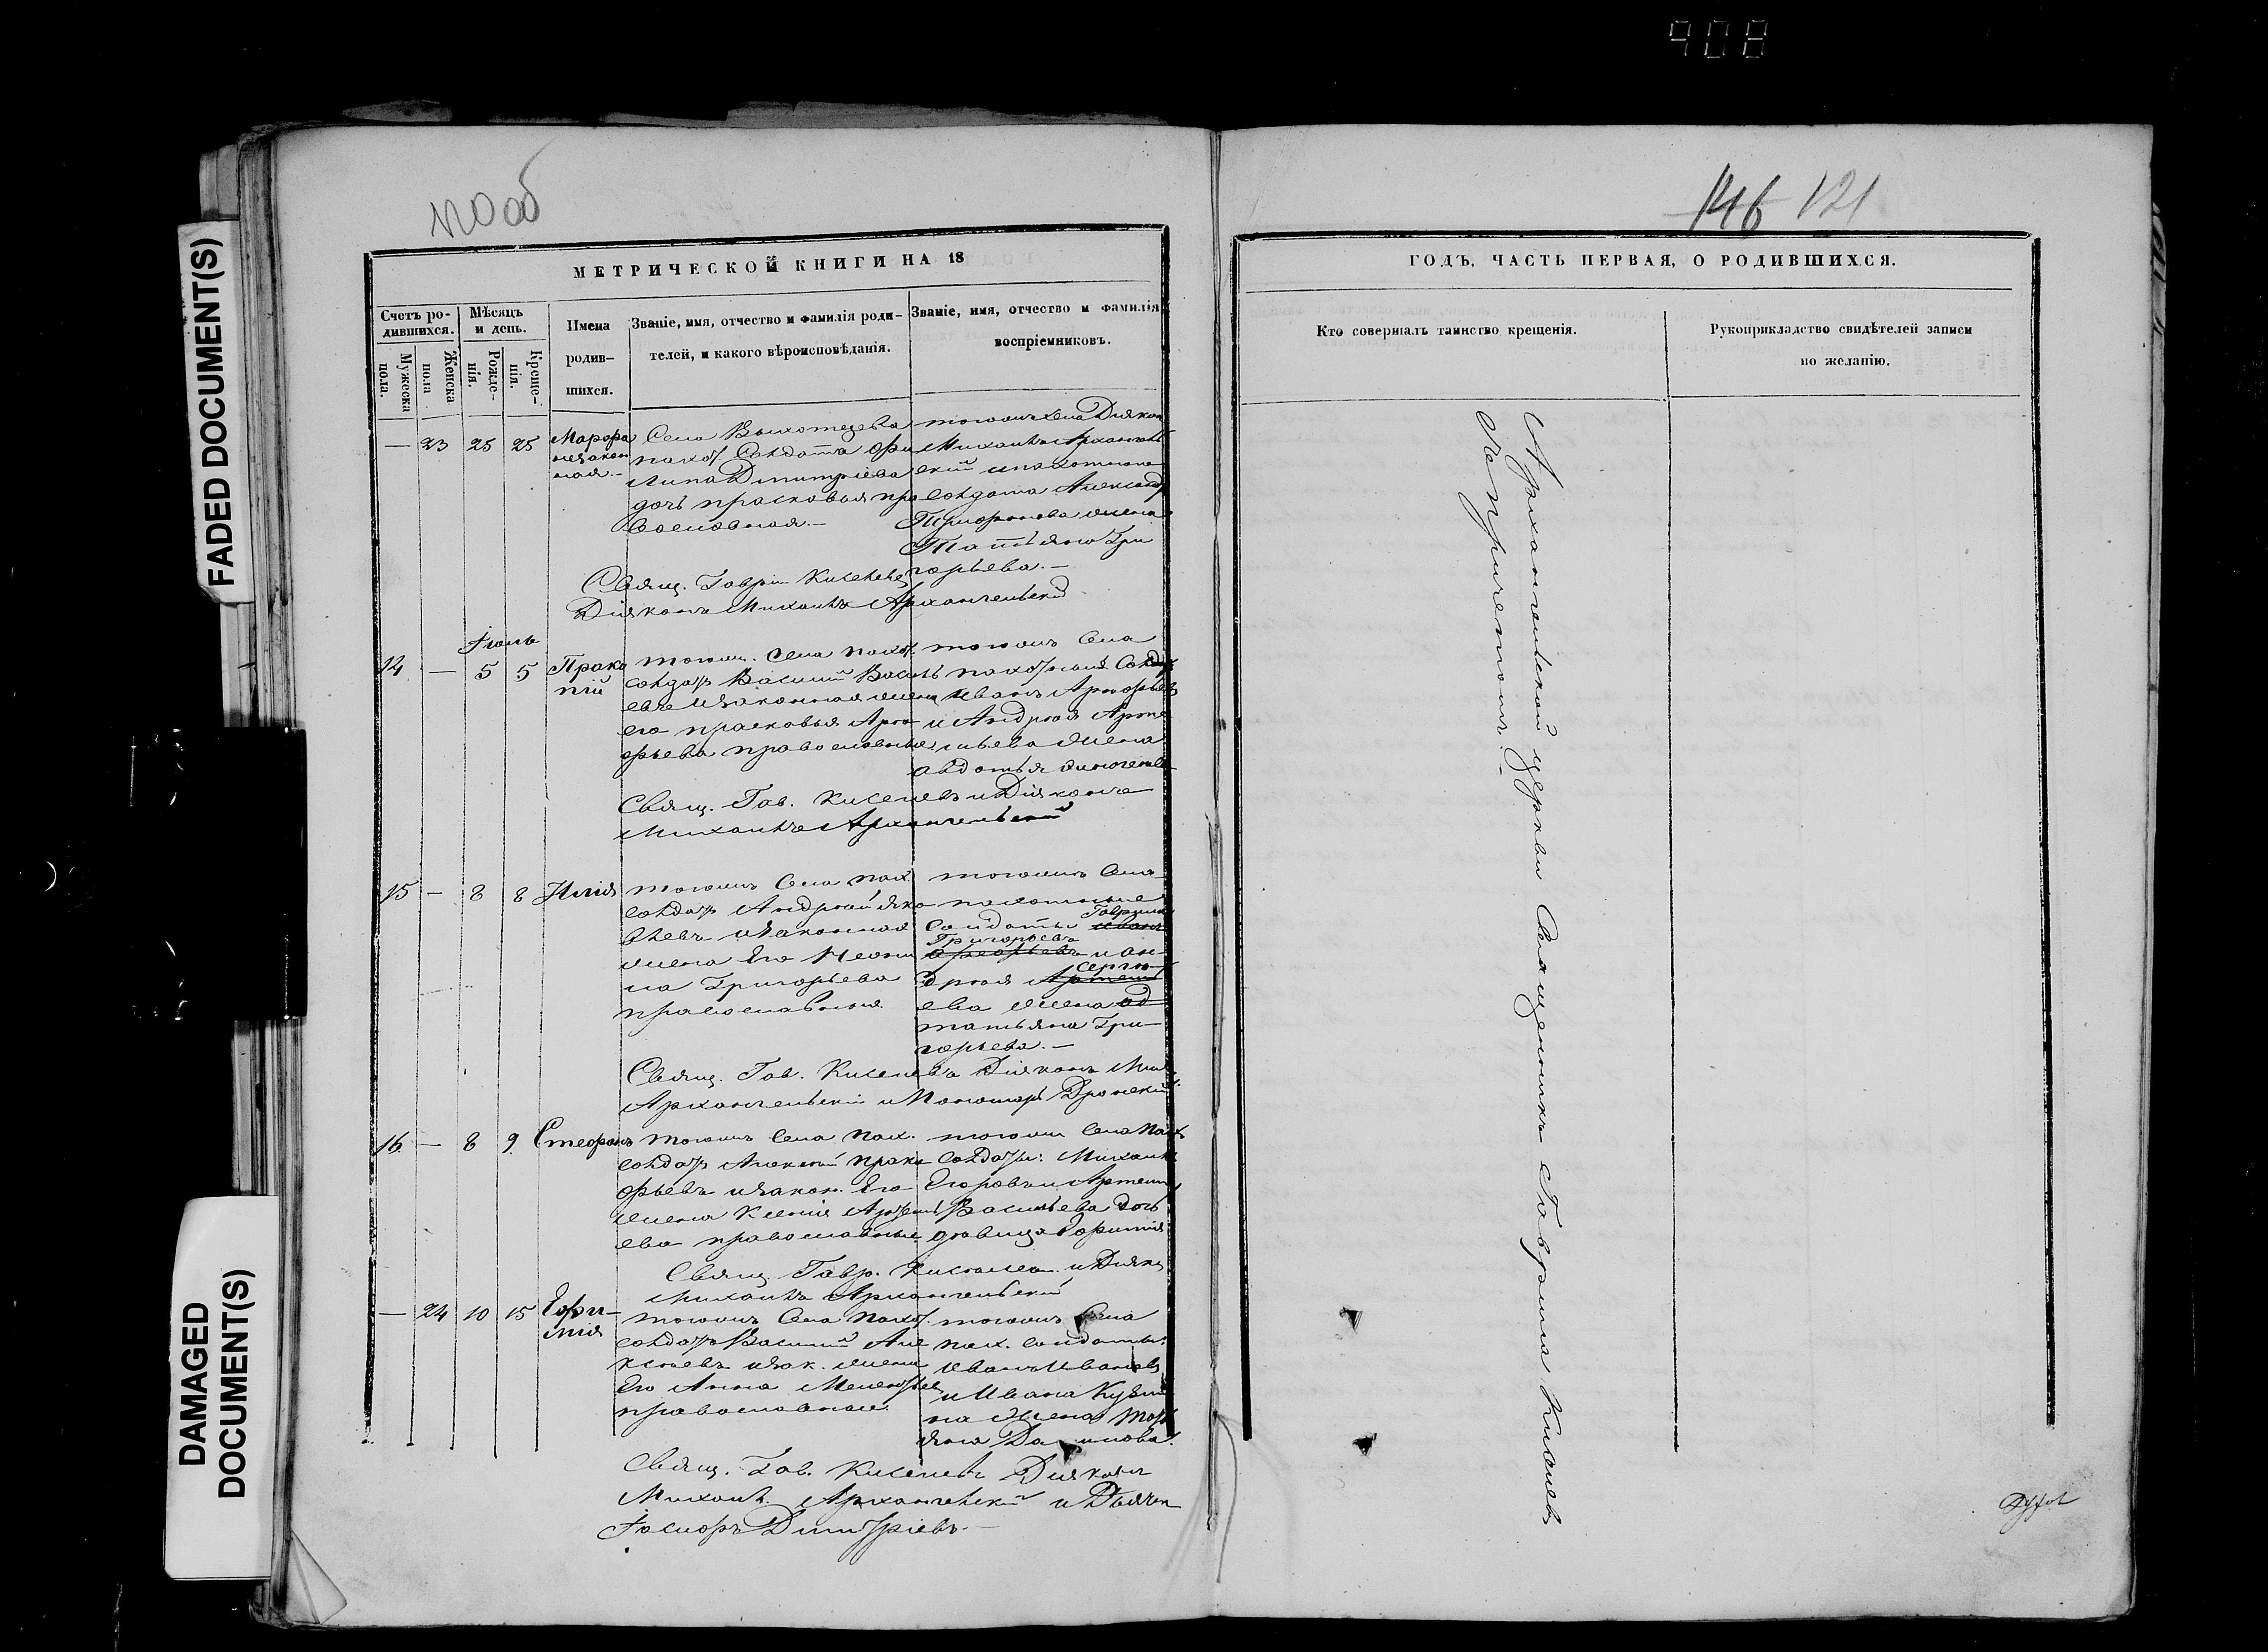 908
FADED DOCUMENT(S)
DAMAGED
DOCUMENT(S)
120 об
МЕТРИЧЕСКОЙ КНИГИ НА 18
Счетъ ро-
дившихся.
Мужеска
пола.
Женска
пола
Мѣсяцъ
и день.
Рожде-
нія.
Креще-
нія.
Имена
родив-
шихся.
Званіе, имя, отчество и фамилія роди-
телей, и какого вѣроисповѣданія.
Званіе, имя, отчество и фамилія
воспріемниковъ.
— 23 25 25
Марфа
незакон
ная.-
Села
пахот. Солдата Фи
липа Дмитріева
дочь прасковья пра
вославная.-
тогожъ села Діякон
Михаилъ Архангель
скій
солдата Александр
Трифонова жена
Татьяна Гри
горьева.-
Свящ. Гавріи Киселевъ
Діяконъ Михаилъ Архангельскій
Іюль
14 — 5 5
Прако
пій
тогожъ. Села пахот.
солдатъ Василій Василь
евъ изаконная жена
его прасковья Арте
фьева православные
тогожъ Села
пахотный Солдат
Иванъ
и Андрея Арте
мьева жена
авдотья
Свящ. Гав. Киселевъ и Діяконъ
Михаилъ Архангельскій
15 — 8 8 Илія
тогожъ Села пах.
солдатъ Андрей Яко
влевъ изаконная
жена Его Неони
ла Григорьева
православные
тогожъ Села
пахотные
Солдаты Гаврила
Григорьевъ
и ан
дрея Сергѣ
ева жена
татьяна Гри-
горьева.-
Свящ. Гав. Киселевъ Діяконъ Мих.
Архангельскій и Пономарь Дронскій
16 — 8 9 Стефанъ
тогожъ Села пах.
солдатъ Алексѣй прако
фьевъ изакон. Его
жена Ксенія Артемь
ева православные
тогожъ Села пах.
солдаты: Михаилъ
Егоровъ и Артемія
Васильева дочь
дѣвица Ефимія
Свящ. Гавр. Киселевъ и Діяко
Михаилъ Архангельскій
— 24 10 15
Ефи-
мія
тогожъ Села пахот.
солдатъ Василій Але
ксѣевъ изак. жена
Его Анна
православные
тогожъ Села
пах. солдаты:
Иванъ Ивановъ
и Ивана Кузми
на жена
Свящ. Гав. Киселевъ Діяконъ
Михаилъ Архангельскій и Дьячек
Іосифъ Димитріевъ.-
146 121
ГОДЪ, ЧАСТЬ ПЕРВАЯ, О РОДИВШИХСЯ.
Кто совершалъ таинство крещенія.
Рукоприкладство свидѣтелей записи
по желанію.
Архангельской церкви Священникъ Гавріилъ Киселевъ
съ причетомъ.-